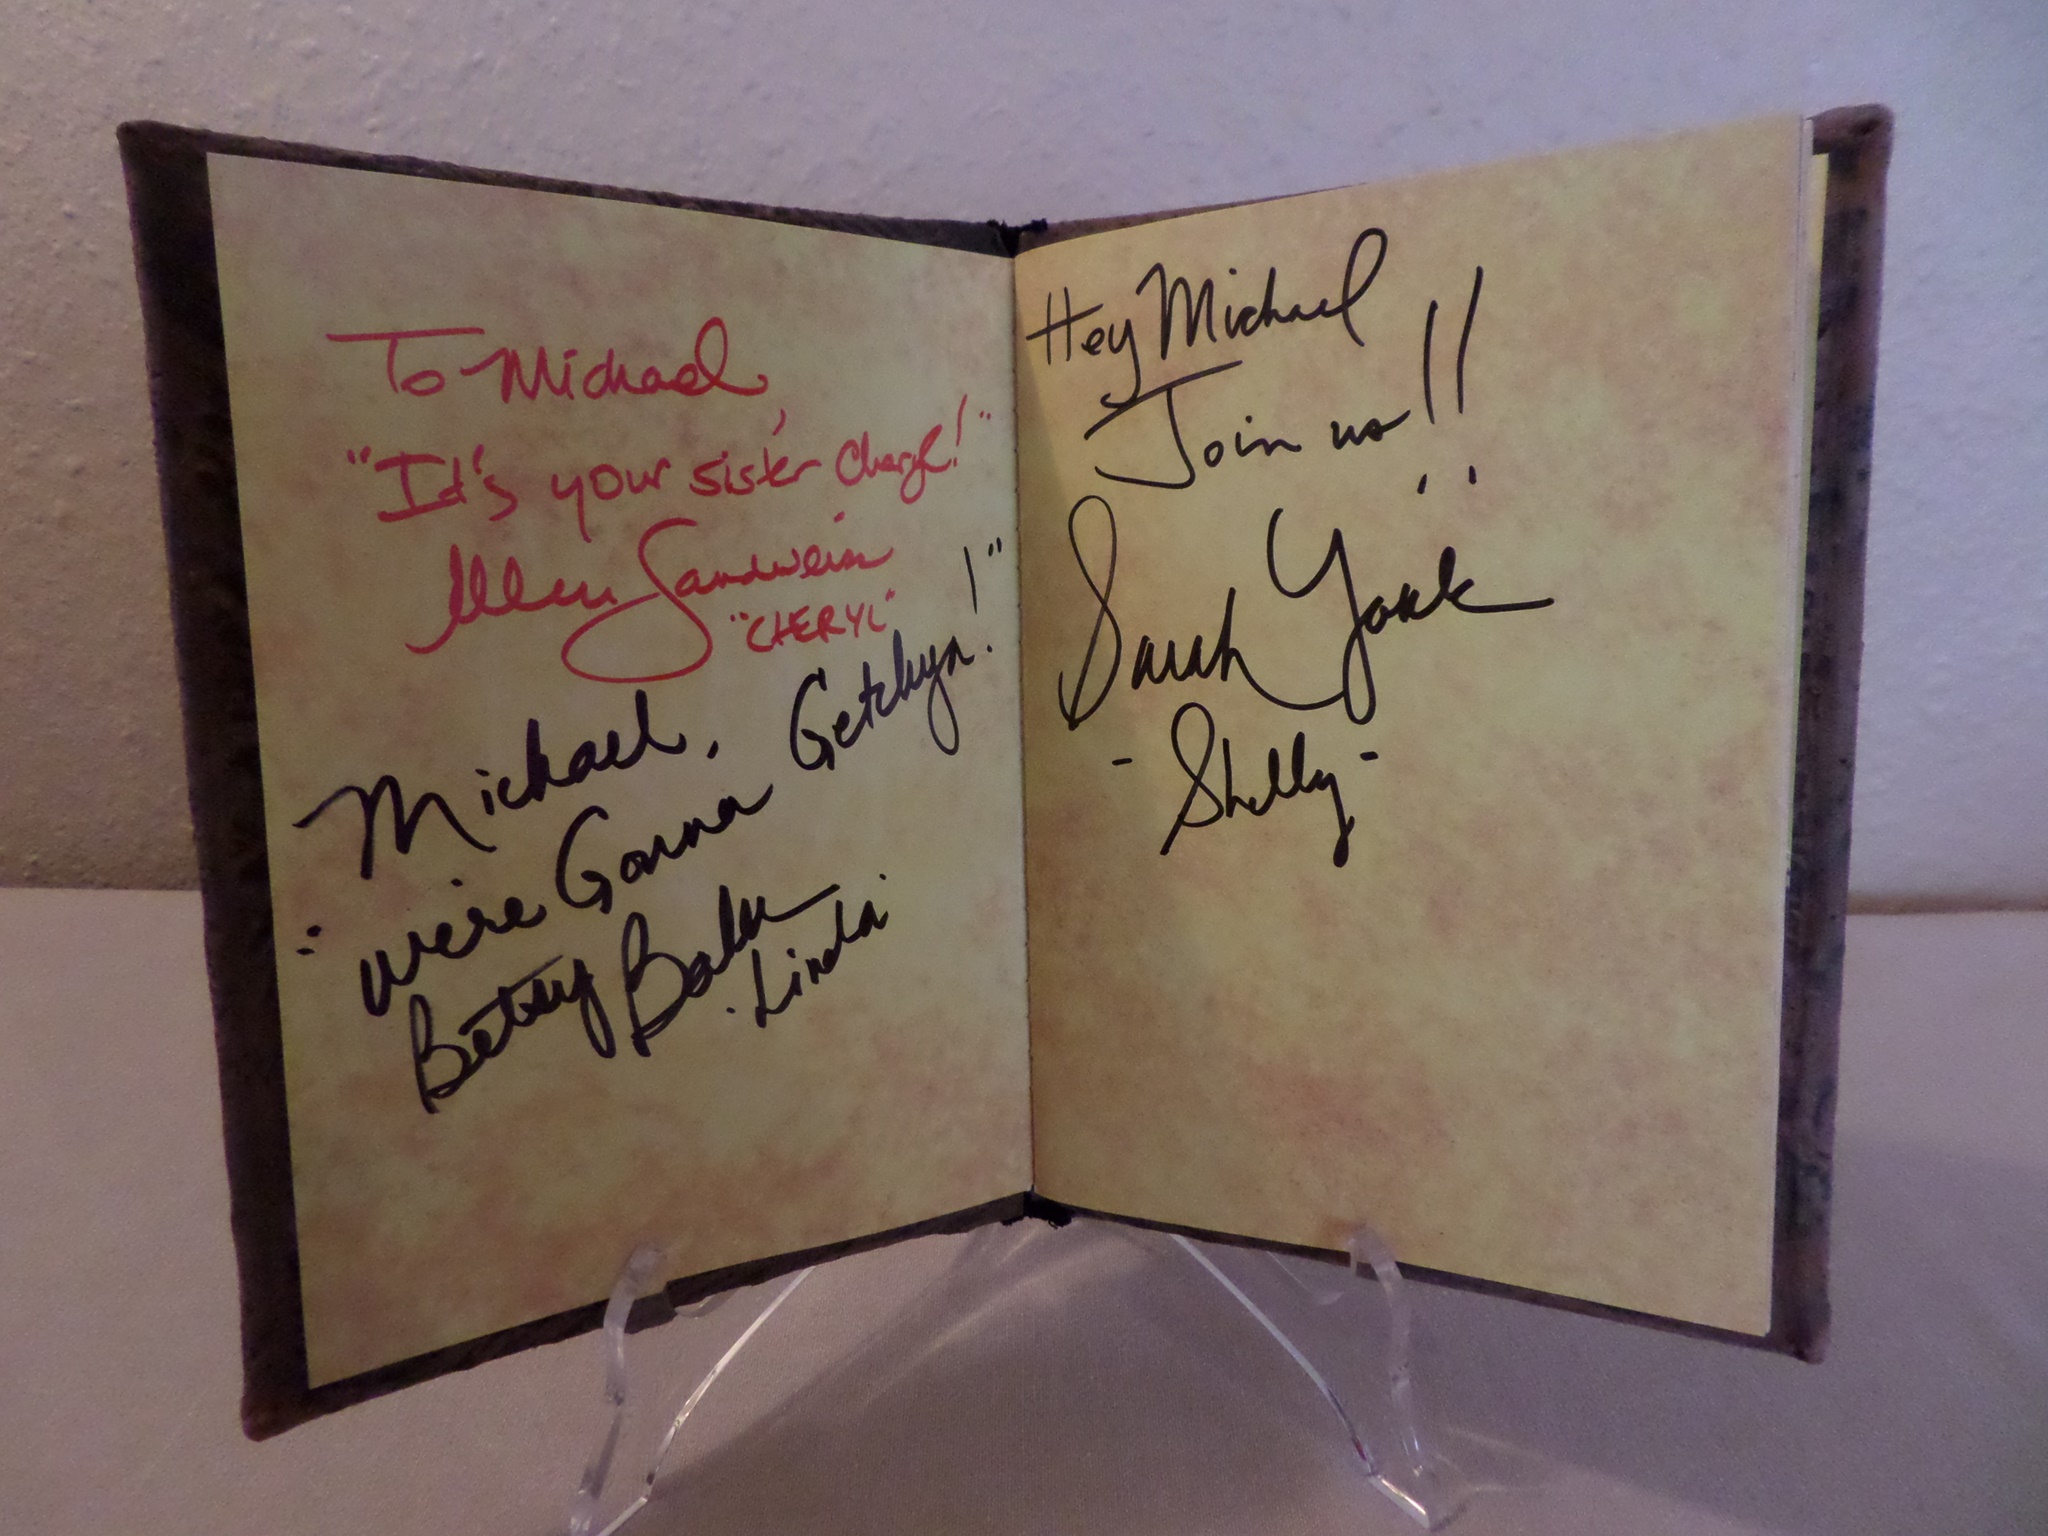 To Michael,
"It's your sister Cheryl!"
Ellen Sandweiss
"CHERYL"
Michael,
"We're Gonna Getchya!"
Betsy Baker
"Linda"
Hey Michael
Join us!!
Sarah York
-Shelly-